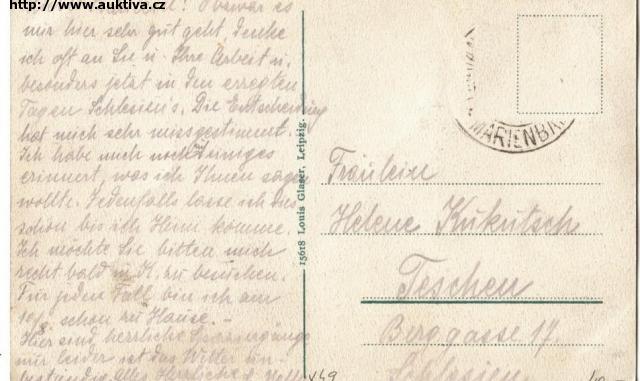 http://www.auktiva.cz
Obzwar es
mir hier sehr gut geht, denke
ich oft an Sie u. Ihre Arbeit u.
besonders jetzt in den erregten
Tagen Schlesien's. Die Entscheidung
hat mich sehr missgestimmt.
Ich habe mich noch einiges
erinnert, was ich Ihnen sagen
wollte. Jedenfalls lasse ich das
schon bis ich Heim komme.
Ich möchte Sie bitten mich
recht bald in K. zu besuchen.
Für jeden Fall bin ich am
schon zu Hause. –
Hier sind herrliche Spaziergänge
nur leider ist das Wetter un-
beständig. Alles Herzliche
15618 Louis Glaser, Leipzig.
MARIENB
Fräulein
Helene Kukutsch
Teschen
Berggasse 17.
Schlesien